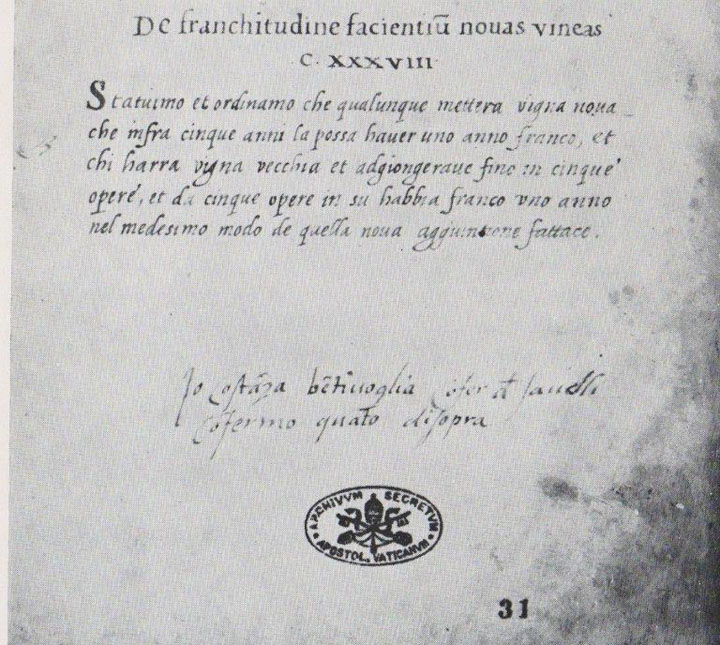 De franchitudine facientiū novas vineas
C. XXXVIII
Statuimo et ordinamo che qualunque mettera vigna nova
che infra cinque anni la possa haver uno anno franco, et
chi harra vigna vecchia et adgiongerave fino in cinque
opere, et da cinque opere in su habbia franco vno anno
nel medesimo modo de quella nova aggiuntione fattace.
Io Costāza bētivoglia de Savelli
cōfermo quāto disopra
ARCHIVVM SECRETVM
APOSTOL. VATICANVM
31